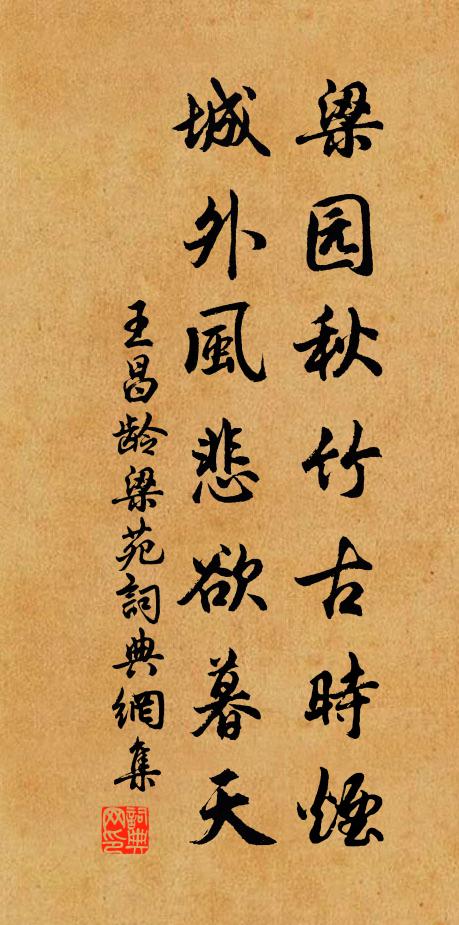 梁园秋竹古時煙
城外風悲欲暮天
王昌齡梁苑詞典網集
詞典
网印